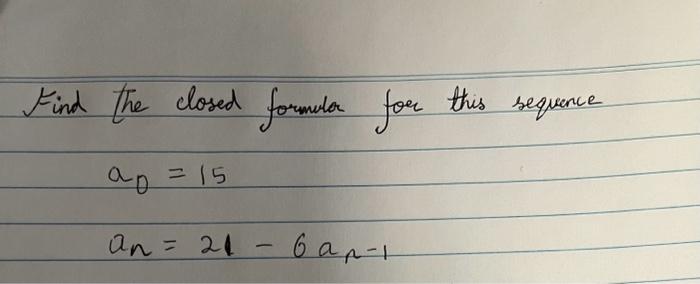 Find the closed formula for this sequence
a₀ = 15
aₙ = 21 - 6aₙ₋₁